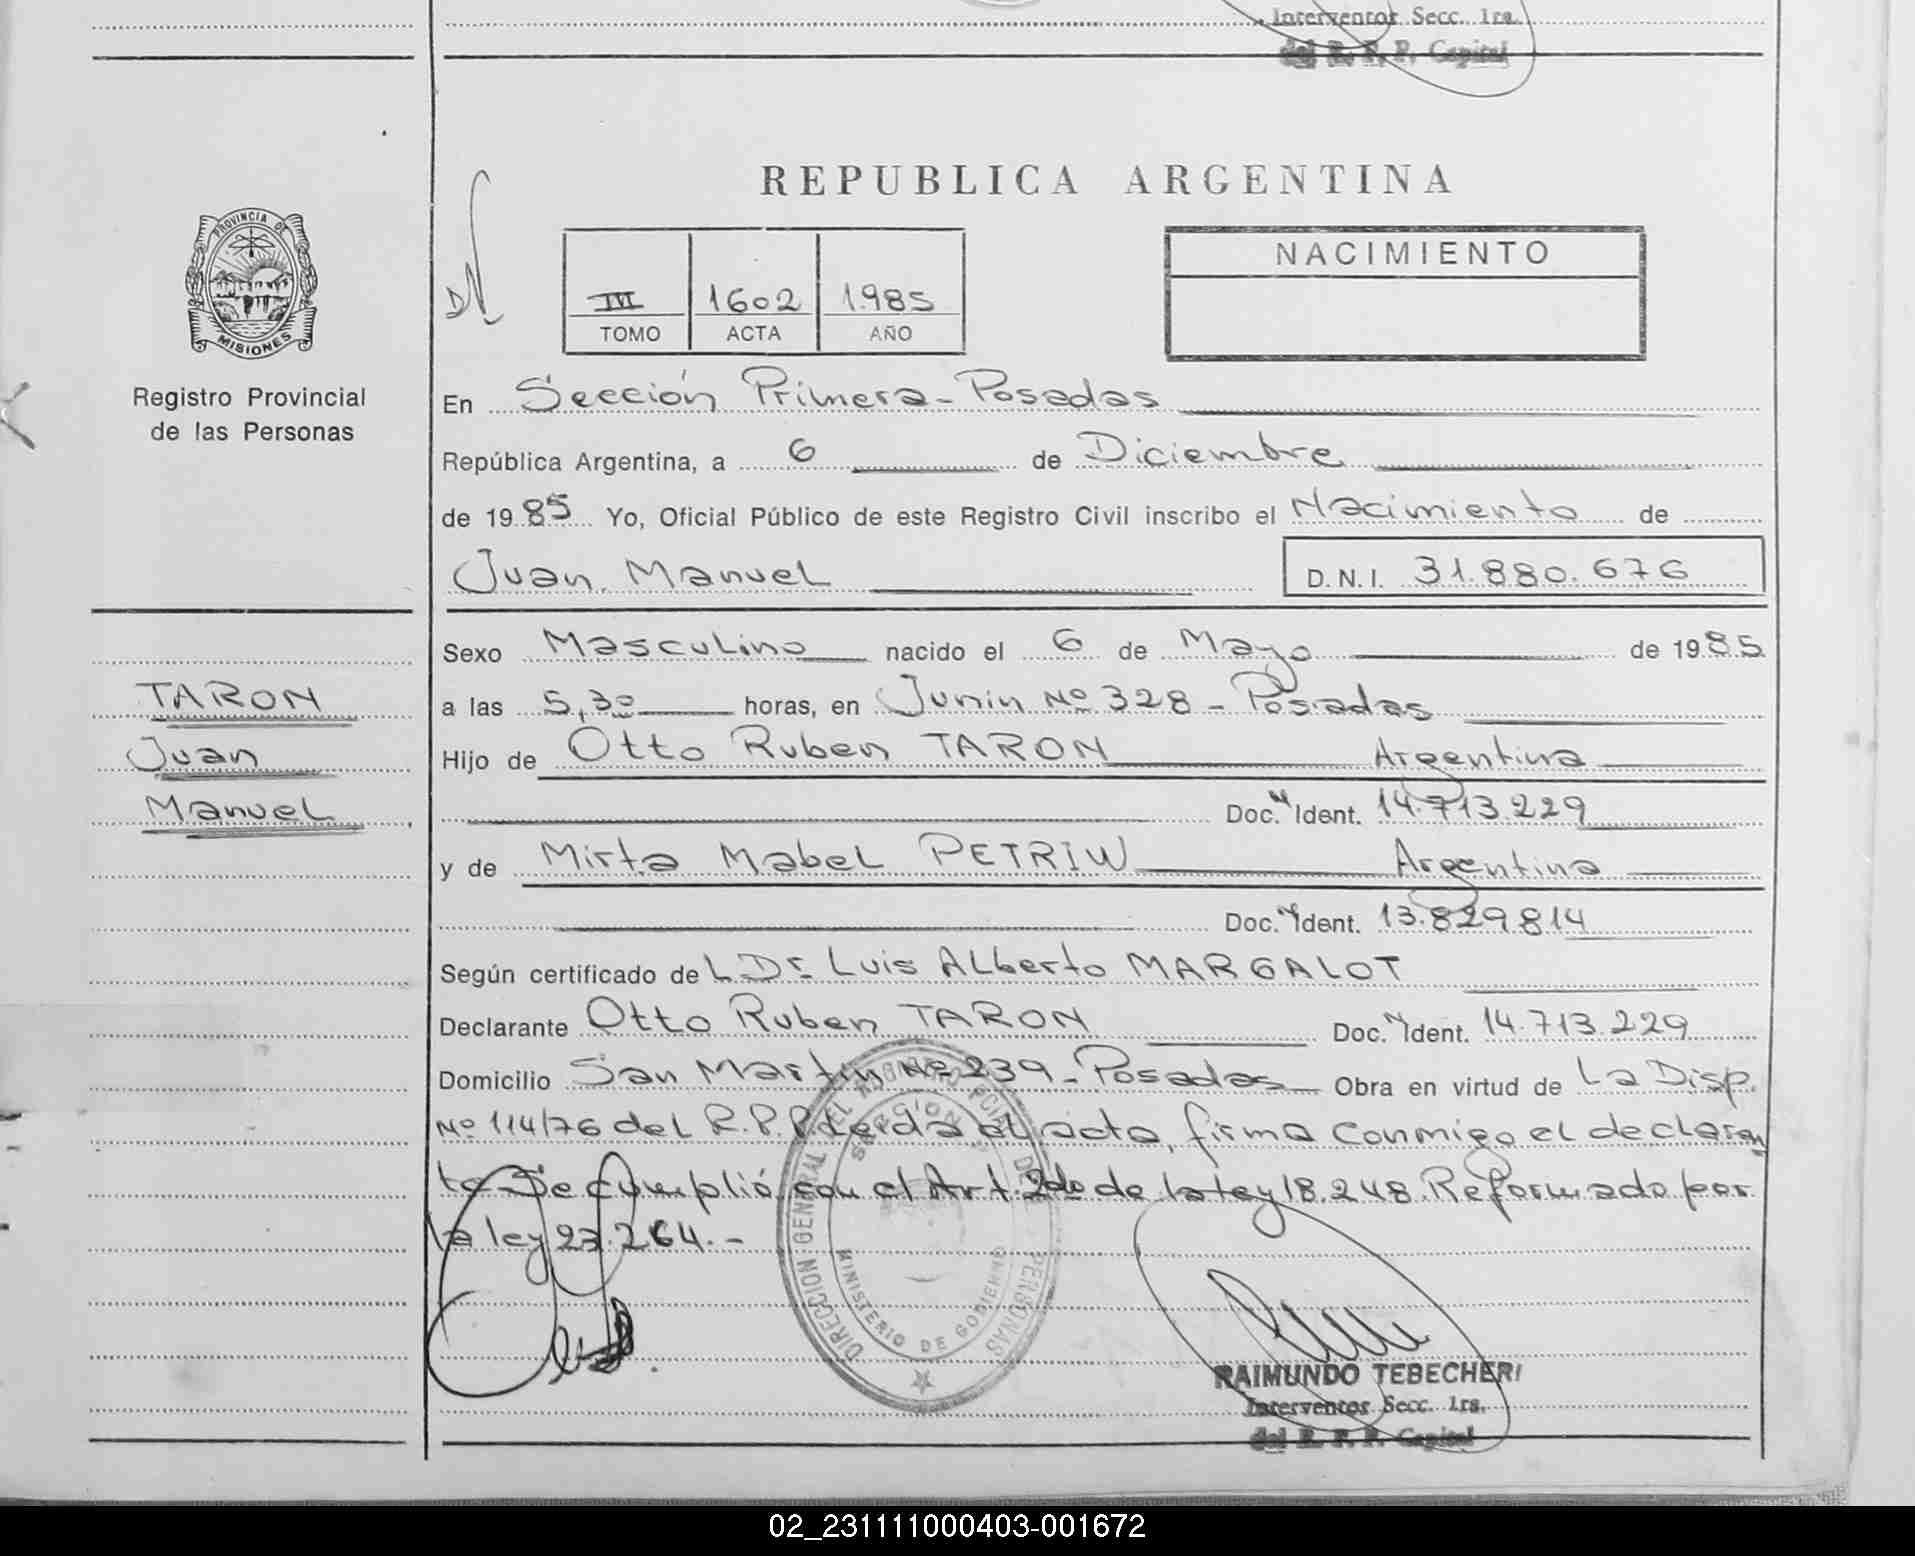 Interventor Secc. 1ra.
del R. P. P. Capital
REPUBLICA ARGENTINA
PROVINCIA DE
MISIONES
Registro Provincial
de las Personas
III 1602 1.985
TOMO ACTA AÑO
NACIMIENTO
En Sección Primera - Posadas
República Argentina, a 6 de Diciembre
de 1985 Yo, Oficial Público de este Registro Civil inscribo el Nacimiento de
Juan Manuel D.N.I. 31.880.676
TARON
Juan
Manuel
Sexo Masculino nacido el 6 de Mayo de 1985
a las 5,30 horas, en Junin Nº 328 - Posadas
Hijo de Otto Ruben TARON Argentina
Doc. N Ident. 14.713.229
y de Mirta Mabel PETRIW Argentina
Doc. N Ident. 13.829814
Según certificado del Dr. Luis Alberto MARGALOT
Declarante Otto Ruben TARON Doc. N Ident. 14.713.229
Domicilio San Martin Nº 239 - Posadas Obra en virtud de la Disp.
Nº 114/76 del R.P.P. Leida el acta, firma conmigo el declaran
te Se cumplió con el Art. 2do de la ley 18.248. Reformado por
la ley 23.264. -
DIRECCION GENERAL DEL REGISTRO PCIAL. DE LAS PERSONAS
MINISTERIO DE GOBIERNO
RAIMUNDO TEBECHERI
Interventor Secc. 1ra.
del R. P. P. Capital
02_231111000403-001672